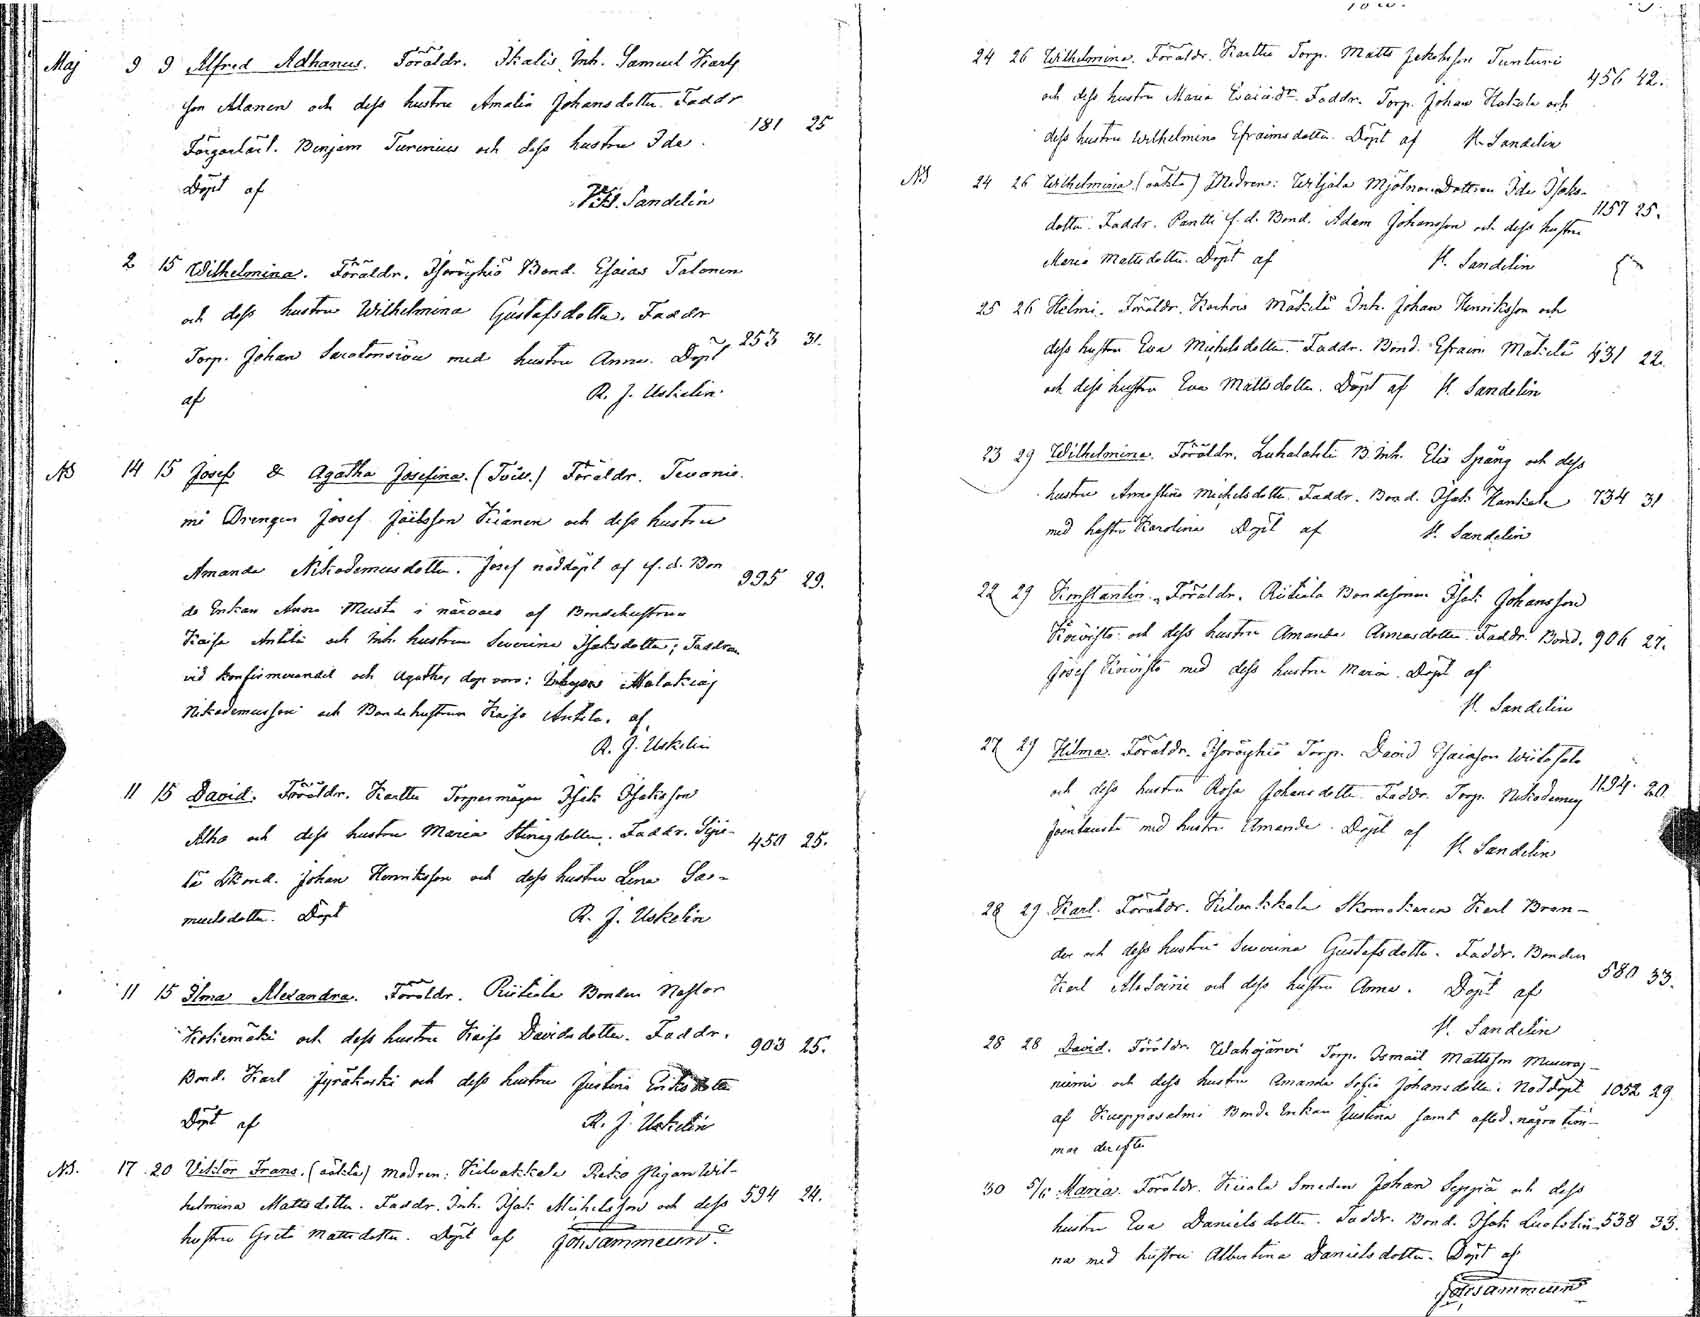 Maj 9 9 Alfred Adhanus. Föräldr. Ikalis Inh. Samuel Karls
son Alanen och dess hustru Amalia Johansdotter. Faddr
Färgarlärl. Benjam Turenius och dess hustru Ida. 181 25
Döpt af
H. Sandelin
2 15 Wilhelmina. Föräldr. Isoröyhiö Bond. Esaias Talonen
och dess hustru Wilhelmina Gustafsdotter. Faddr
Torp. Johan med hustru Anna. Döpt 253 31.
af R. J. Uskelin.
NB 14 15 Josef & Agatha Josefina. (Tvill.) Föräldr. Tevanie-
mi Drengen Josef Joelsson Kiänen och dess hustru
Amanda Nikodemusdotter. Josef nöddöpt af f. d. Bon 995 29.
de Enkan Anna Musta i närvaro af Bondehustrun
Kaisa Anttila och Inh. hustrun Severina Isaksdotter; Faddrar
vid konfirmerandet och Agathas dop voro: Malakias
Nikodemusson och Bondehustrun Kaisa Anttila. af
R. J. Uskelin
11 15 David. Föräldr. Karttu Torparmågen Isak Isaksson
Alho och dess hustru Maria Stinasdotter. Faddr. Sipi- 450 25.
lä Bond. Johan Henriksson och dess hustru Lena Sa-
muelsdotter. Döpt R. J. Uskelin
11 15 Ilma Alexandra. Föräldr. Riitiala Bonden Nestor
Kokemäki och dess hustru Kaisa Davidsdotter. Faddr. 903 25.
Bond. Karl Jyräkoski och dess hustru Justina Eriksdotter
Döpt af R. J. Uskelin
NB. 17 20 Viktor Frans. (oäkta) modren: Kilvakkala Piko Pigan Wil-
helmina Mattsdotter. Faddr. Inh. Isak Michelsson och dess 594 24.
hustru Greta Mattsdotter. Döpt af Joh. Sammeun.
24 26 Wilhelmina. Föräldr. Karttu Torp. Matts Jakobsson Tunturi
och dess hustru Maria Esaiædr. Faddr. Torp. Johan Hakala och 456 42.
dess hustru Wilhelmina Efraimsdotter. Döpt af H. Sandelin
NB 24 26 Wilhelmina. (oäkta) Modren: Wiljala Dottren Ida Isaks-
dotter. Faddr. Pantti f. d. Bond. Adam Johansson och dess hustru 1157 25.
Maria Mattsdotter. Döpt af H. Sandelin
25 26 Helmi. Föräldr. Karhois Mäkelä Inh. Johan Henriksson och
dess hustru Eva Michelsdotter. Faddr. Bond. Efraim Mäkelä 431 22.
och dess hustru Eva Mattsdotter. Döpt af H. Sandelin
23 29 Wilhelmina. Föräldr. Luhalahti B. Inh. Elis Spång och dess
hustru Annastina Michelsdotter. Faddr. Bond. Isak Hankala 734 31
med hustru Karolina Döpt af H. Sandelin
22 29 Konstantin. Föräldr. Riitiala Bondesonen Isak Johansson
Koivisto och dess hustru Amanda Annasdotter. Faddr. Bond. 906 27.
Josef Koivisto med dess hustru Maria. Döpt af
H. Sandelin
27 29 Hilma. Föräldr. Isoröyhiö Torp. David Esaiasson Wiitasalo
och dess hustru Rosa Johansdotter. Faddr. Torp. Nikodemus 1194. 20.
Joentausta med hustru Amanda. Döpt af
H. Sandelin
28 29 Karl. Föräldr. Kilvakkala Skomakaren Karl Bran-
der och dess hustru Severina Gustafsdotter. Faddr. Bonden 580 33.
Karl och dess hustru Anna. Döpt af
H. Sandelin
28 28 David. Föräldr. Wahojärvi Torp. Ismael Mattsson
niemi och dess hustru Amanda Sofia Johansdotter. Nöddöpt 1052 29
af Kuoppasalmi Bonde Enkan Justina samt afled några tim-
mar derefter
30 5/6 Maria. Föräldr. Kiiala Smeden Johan Seppä och dess
hustru Eva Danielsdotter. Faddr. Bond. Isak 538 33.
na med hustru Albertina Danielsdotter. Döpt af
Joh. Sammeun